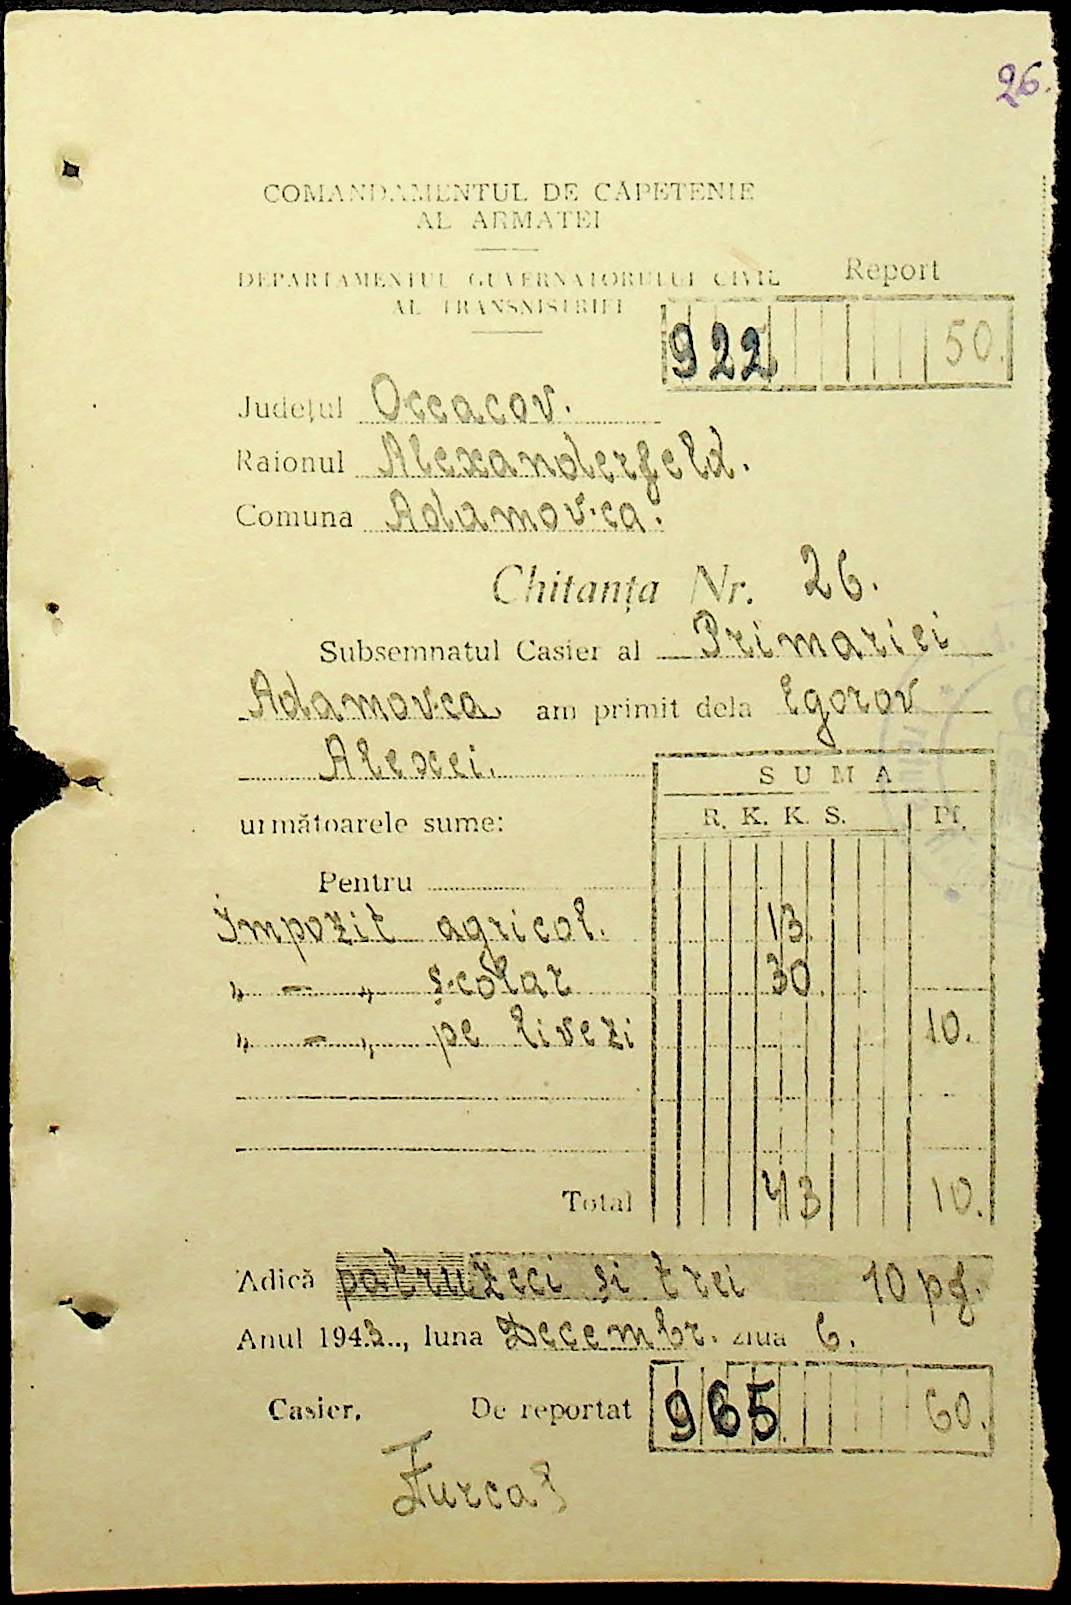 26.
COMANDAMENTUL DE CĂPETENIE
AL ARMATEI
DEPARTAMENTUL GUVERNATORULUI CIVIL
AL TRANSNISTRIEI
Report
922 50.
Județul Occacov.
Raionul Alexanderfeld.
Comuna Adamovca.
Chitanța Nr. 26.
Subsemnatul Casier al Primariei
Adamovca am primit dela Egorov
Alexei.
SUMA
următoarele sume: R. K. K. S. Pf.
Pentru
Impozit agricol. 13.
" - " școlar 30.
" - " pe livezi 10.
Total 43 10.
Adică patruzeci și trei 10 pf.
Anul 1943.., luna Decembr. ziua 6.
Casier, De reportat 965 60.